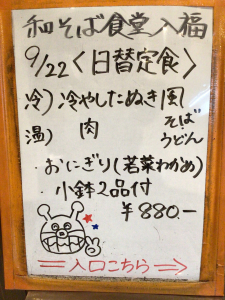 和そば食堂 入福
9/22〈日替定食〉
冷) 冷やしたぬき風
温) 肉 そば
うどん
・おにぎり(若菜わかめ)
・小鉢2品付
¥880.-
入口こちら